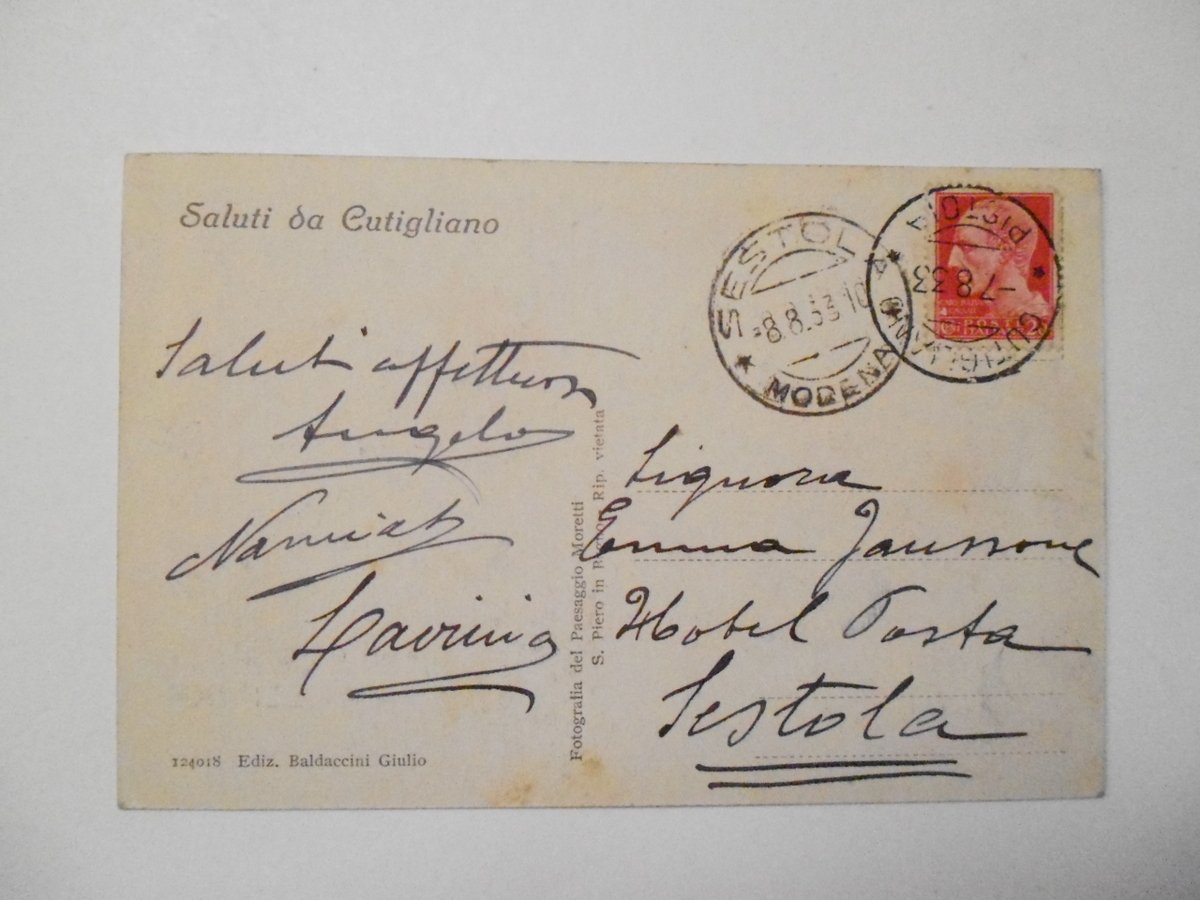 Saluti da Cutigliano
Saluti affettuosi
Angelo
Lavinia
124018 Ediz. Baldaccini Giulio
Fotografia del Paesaggio Moretti
S. Piero in Rip. vietata
SESTOLA
-8.8.33 10
* MODENA
PISTOIA
-7.8.33
CUTIGLIANO
Signora
Emma
Hotel Posta
Sestola